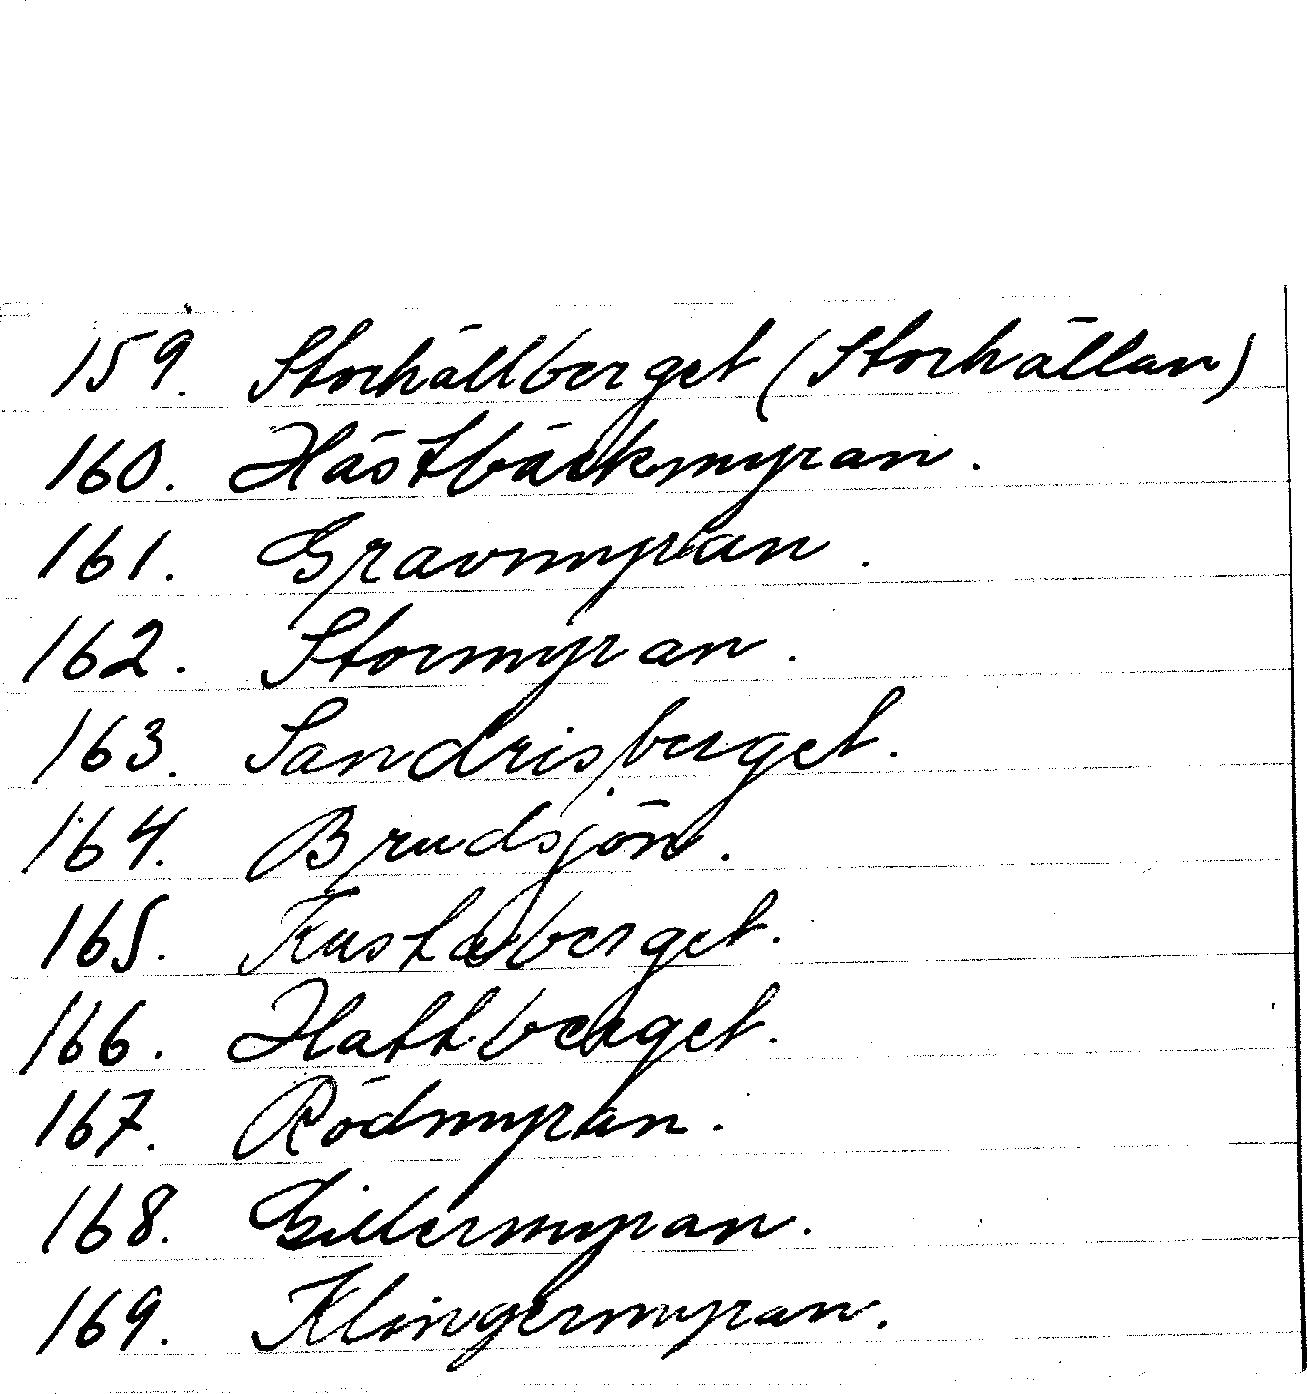 159. Storhällberget (Storhällan)
160. Hästbäckmyran.
161. Gravmyran.
162. Stormyran.
163. Sandrisberget.
164. Brudsjön.
165. Kustaberget.
166. Hattberget.
167. Rödmyran.
168. Gillermyran.
169. Klingermyran.